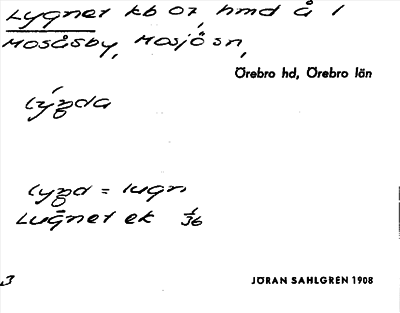 Lygnet kb 07, hmd å 1
Mosåsby, Mosjö sn,
Örebro hd, Örebro län
lýgda
lygd = lugn
Lugnet ek 1/36
3
JÖRAN SAHLGREN 1908